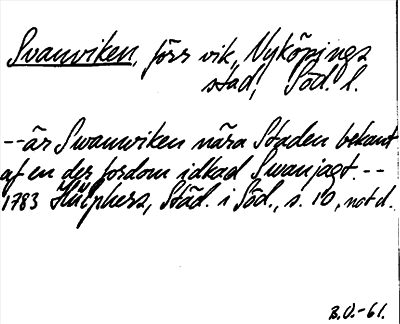 Svanviken, förr vik, Nyköpings
stad, Söd. l.
--är Swanwiken nära Staden bekant
af en der fordom idkad Swanjagt.--
1783 Hülphers, Städ. i Söd., s. 10, not d.
B.O.-61.